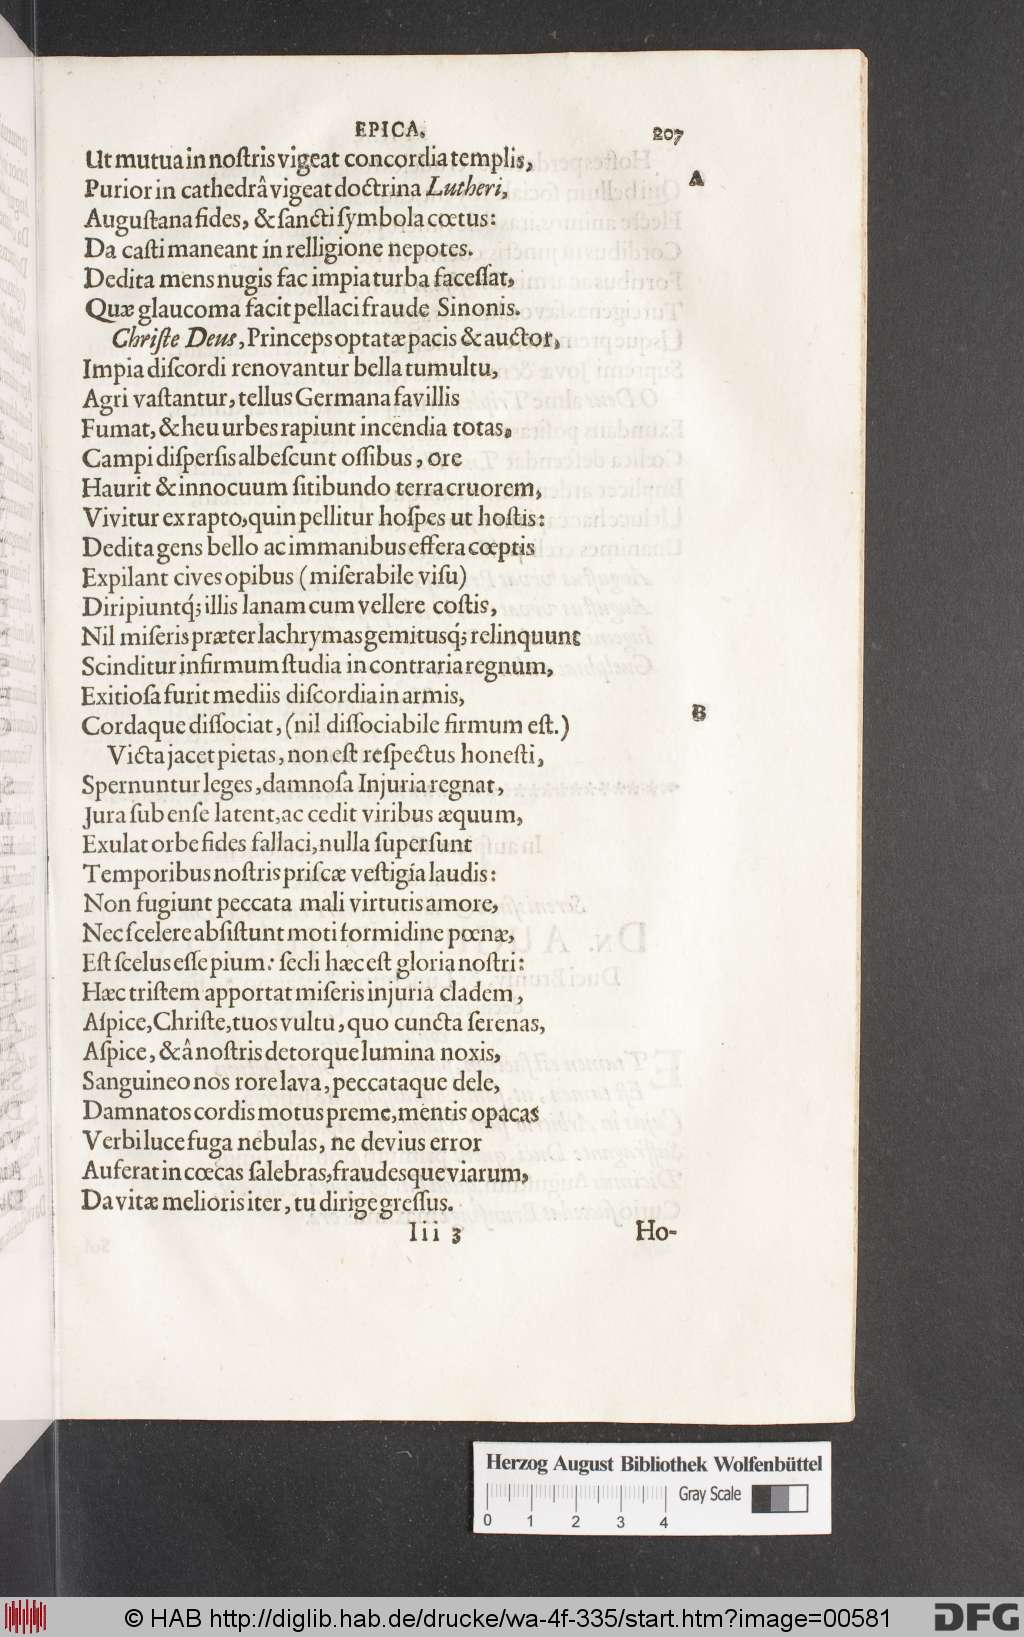 EPICA. 207
Ut mutua in noſtris vigeat concordia templis,
A
Purior in cathedrâ vigeat doctrina Lutheri,
Auguſtana fides, & ſancti ſymbola cœtus:
Da caſti maneant in relligione nepotes.
Dedita mens nugis fac impia turba faceſſat,
Quæ glaucoma facit pellaci fraude Sinonis.
Chriſte Deus, Princeps optatæ pacis & auctor,
Impia diſcordi renovantur bella tumultu,
Agri vaſtantur, tellus Germana favillis
Fumat, & heu urbes rapiunt incendia totas,
Campi diſperſis albeſcunt oſſibus, ore
Haurit & innocuum ſitibundo terra cruorem,
Vivitur ex rapto, quin pellitur hoſpes ut hoſtis:
Dedita gens bello ac immanibus effera cœptis
Expilant cives opibus (miſerabile viſu)
Diripiuntq́; illis lanam cum vellere coſtis,
Nil miſeris præter lachrymas gemitusq́; relinquunt
Scinditur infirmum ſtudia in contraria regnum,
Exitioſa furit mediis diſcordia in armis,
B
Cordaque diſſociat, (nil diſſociabile firmum eſt.)
Victa jacet pietas, non eſt reſpectus honeſti,
Spernuntur leges, damnoſa Injuria regnat,
Jura ſub enſe latent, ac cedit viribus æquum,
Exulat orbe fides fallaci, nulla ſuperſunt
Temporibus noſtris priſcæ veſtigia laudis:
Non fugiunt peccata mali virtutis amore,
Nec ſcelere abſiſtunt moti formidine pœnæ,
Eſt ſcelus eſſe pium: ſecli hæc eſt gloria noſtri:
Hæc triſtem apportat miſeris injuria cladem,
Aſpice, Chriſte, tuos vultu, quo cuncta ſerenas,
Aſpice, & â noſtris detorque lumina noxis,
Sanguineo nos rore lava, peccataque dele,
Damnatos cordis motus preme, mentis opacas
Verbi luce fuga nebulas, ne devius error
Auferat in cœcas ſalebras, fraudesque viarum,
Da vitæ melioris iter, tu dirige greſſus.
Iii 3 Ho-
Herzog August Bibliothek Wolfenbüttel
Gray Scale
0 1 2 3 4
© HAB http://diglib.hab.de/drucke/wa-4f-335/start.htm?image=00581
DFG